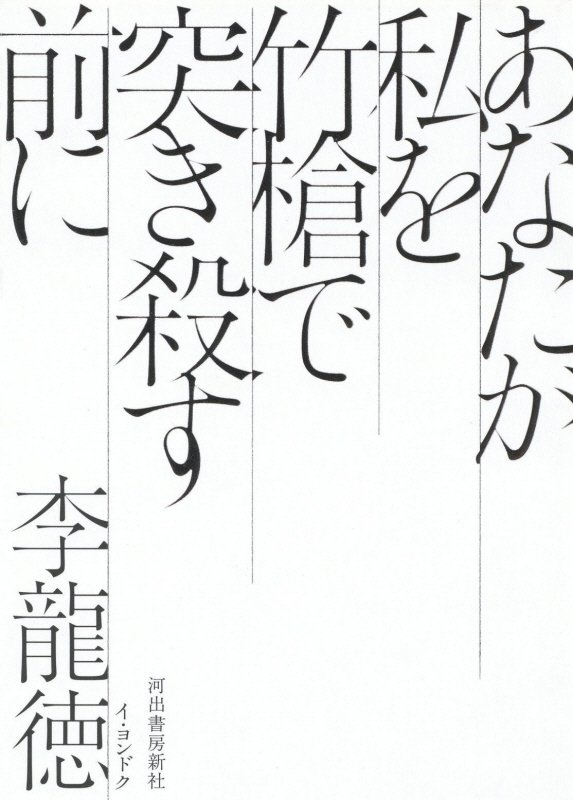 あなたが
私を
竹槍で
突き殺す
前に
李龍徳
イ・ヨンドク
河出書房新社